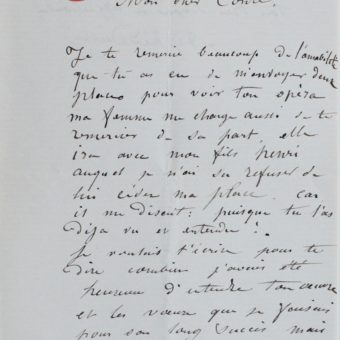 Mon cher Comte,
Je te remercie beaucoup de l'amabilité
que tu as eu de m'envoyer deux
places pour voir ton opéra
ma femme me charge aussi de te
remercier de sa part, elle
ira avec mon fils henri
auquel je n'ai su refuser de
lui céder ma place. Car
il me disent: puisque tu l'as
déja vu et entendu!.
Je voulais t'écrire pour te
dire combien j'avais été
heureux d'entendre ton oeuvre
et les voeux que je faisais
pour son long succès mais